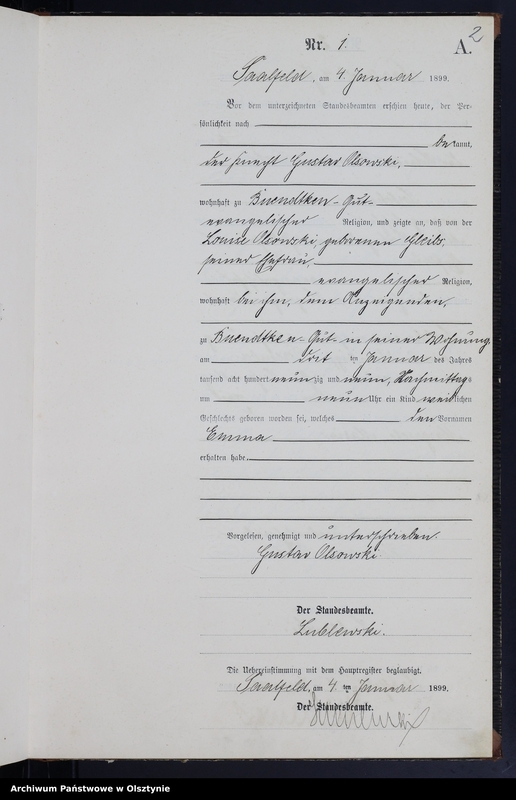 2
Nr. 1.
A.
Saalfeld, am 4. Januar 1899.
Vor dem unterzeichneten Standesbeamten erschien heute, der Per-
sönlichkeit nach
bekannt,
der Knecht Gustav Olsowski,
wohnhaft zu Buendtken-Gut-
evangelischer Religion, und zeigte an, daß von der
Louise Olsowski, geborenen
seiner Ehefrau,
evangelischer Religion,
wohnhaft bei ihm, dem Anzeigenden,
zu Buendtken-Gut- in seiner Wohnung
am ten Januar des Jahres
tausend acht hundert neunzig und neun, Nachmittags
um neun Uhr ein Kind weiblichen
Geschlechts geboren worden sei, welches den Vornamen
Emma
erhalten habe.
Vorgelesen, genehmigt und unterschrieben.
Gustav Olsowski.
Der Standesbeamte.
Lublewski.
Die Uebereinstimmung mit dem Hauptregister beglaubigt.
Saalfeld, am 4 ten Januar 1899.
Der Standesbeamte.
Archiwum Państwowe w Olsztynie